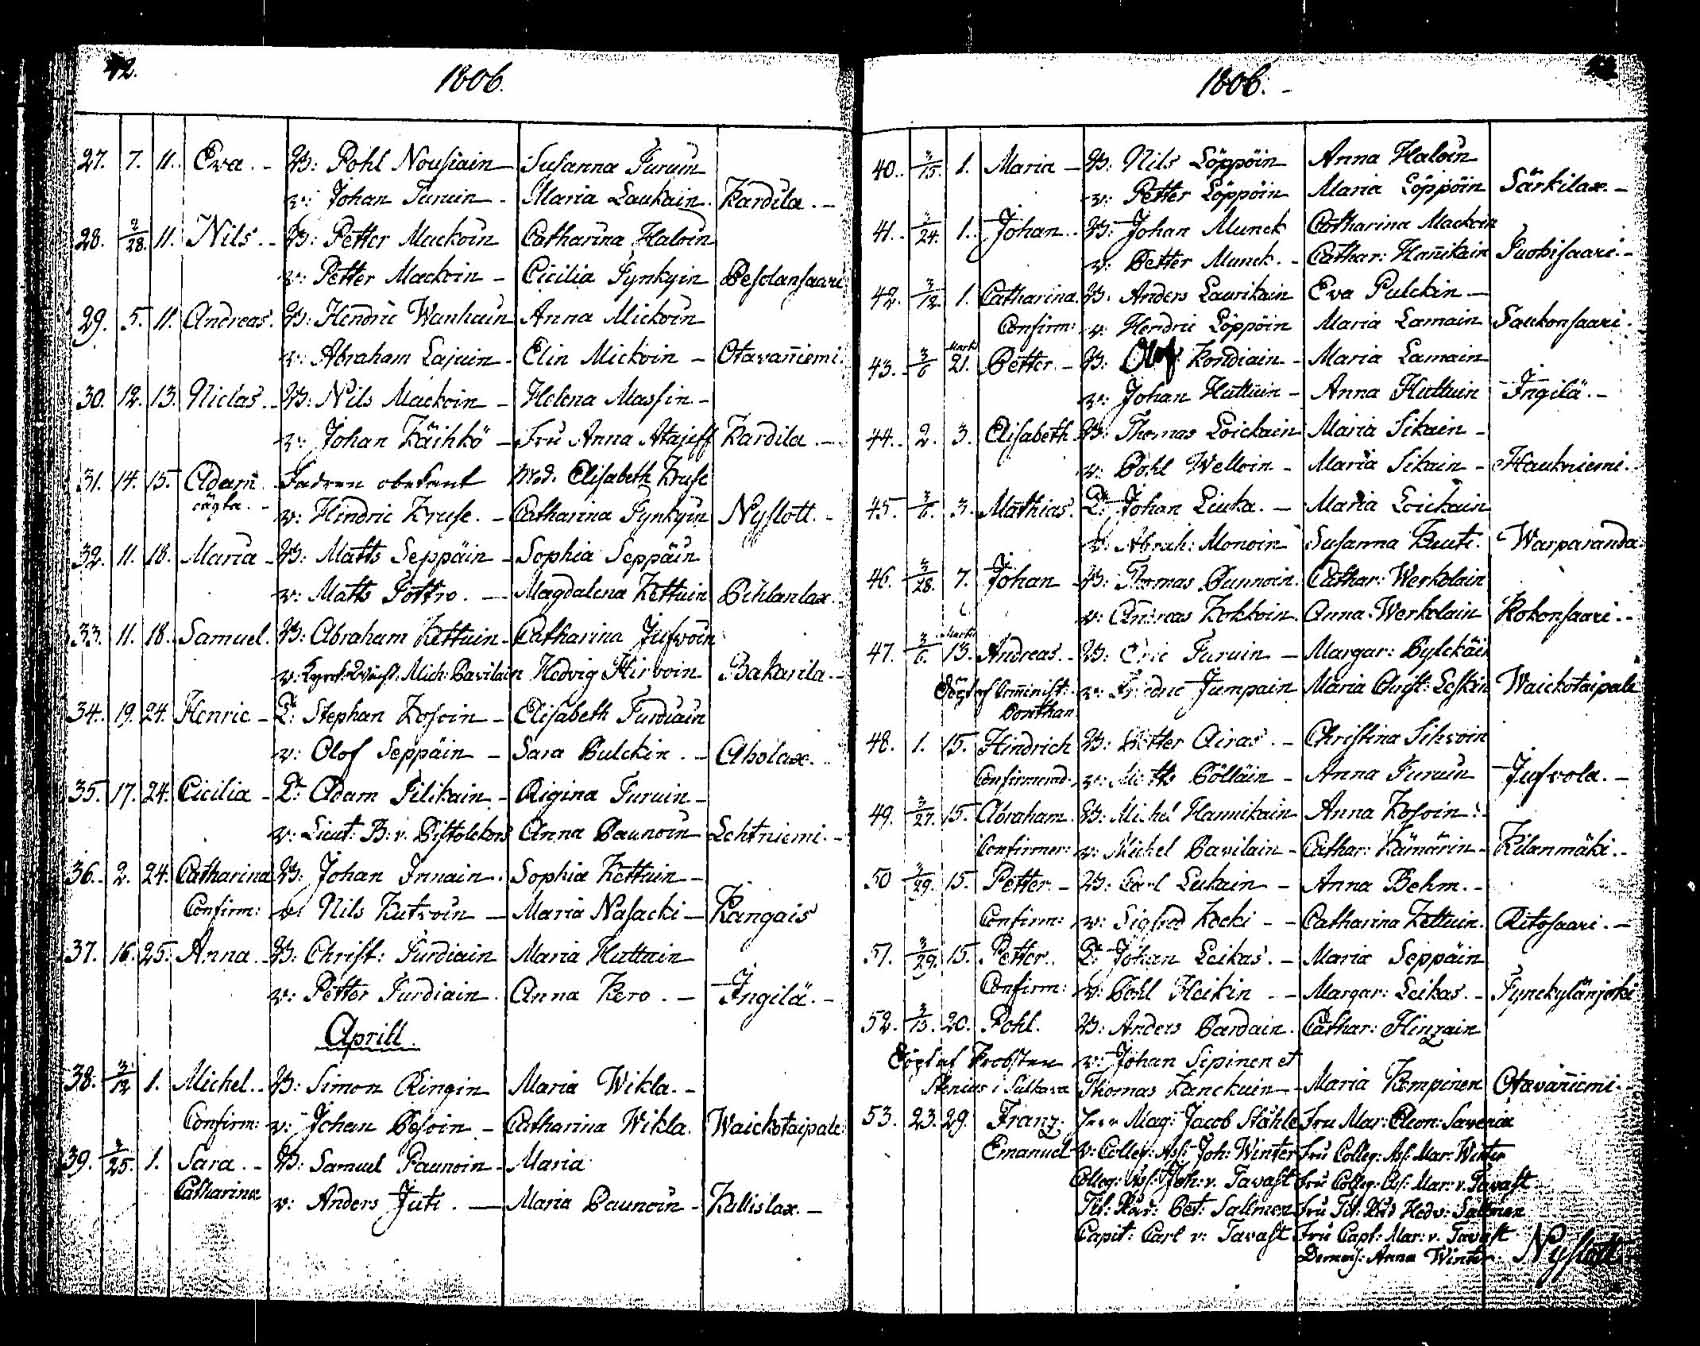 42.
1806.
27. 7. 11. Eva. - B: Pohl Nousiain Susanna Turuin
v: Johan Turuin - Maria Laukain. Kardila. -
28. 3/28. 11. Nils. - B: Petter Mackoin Catharina Haloin
v: Petter Mackoin - Cicilia Tynkyin Pesolansaari
29. 5. 11. Andreas. B: Hendric Wanhain Anna Mickoin
v: Abraham Lajuin - Elin Mickoin - Otavaniemi.
30. 12. 13. Niclas. - B: Nils Mackoin - Helena Massin -
v: Johan Käihkö - Fru Anna Atajeff Kardila. -
31. 14. 15. Adam Fadren obekant Mod. Elisabeth Kruse
oägta. - v: Hindric Kruse. - Catharina Tynkyin Nyslott. -
32. 11. 18. Maria - B: Matts Seppäin - Sophia Seppäin
v: Matts Pottro. - Magdalena Kettuin Pihlanlax.
33. 11. 18. Samuel. B: Abraham Kettuin - Catharina Jusvoin
v: Mich: Pavilain Hedvig Hirvoin Pakarila. -
34. 19. 24. Henric - D: Stephan Kosoin - Elisabeth Turdiain
v: Olof Seppäin - Sara Pulckin. - Aholax.
35. 17. 24. Cicilia - D: Adam Pilikain - Rigina Turuin -
v: Lieut: B: v. Pistolekors Anna Paunoin Lehtniemi. -
36. 2. 24. Catharina B: Johan Innain. Sophia Kettuin -
Confirm: v: Nils Kutvoin - Maria Nasacki - Kangais
37. 16. 25. Anna. - B: Christ: Turdiain Maria Huttuin
v: Petter Turdiain. Anna Kero. - Ingilä. -
Aprill.
38. 3/12 1. Michel. - B: Simon Ringin Maria Wikla. -
Confirm: v: Johan Pesoin - Catharina Wikla. Waickotaipale
39. 3/25. 1. Sara. - B: Samuel Paunoin - Maria
Catharina v: Anders Juti. - Maria Paunoin - Kallislax. -
1806. -
40. 3/15. 1. Maria - B: Nils Löppöin Anna Haloin
v: Petter Löppöin Maria Löppöin Särkilax. -
41. 3/24. 1. Johan. - B: Johan Munck Catharina Mackoin
v: Petter Munck. - Cathar: Hanikain Tuohisaari. -
42. 3/12. 1. Catharina. B: Anders Laurikain Eva Pulckin -
Confirm: v: Hendric Löppöin Maria Lamain Saukonsaari.
43. 3/6 Martii 21. Petter. - B: Olof Kordiain - Maria Lamain
v: Johan Huttuin - Anna Huttuin Ingilä. -
44. 2. 3. Elisabeth B: Thomas Loickain Maria Sikain -
v: Pohl Welloin - Maria Sikain - Haukniemi.
45. 3/6. 3. Mathias. D: Johan Liuka. - Maria Loickain
v: Abrah: Monoin Susanna Kuuti. Warparanda
46. 3/28. 7. Johan B: Thomas Punnoin. Cathar: Werkolain
v: Andreas Kokkoin. Anna Werkolain Kokonsaari. -
47. 3/6. Martii 13. Andreas. - B: Eric Turuin - Margar: Pylckäin
v: Fredric Jumpain Maria Christ: Leskin Waickotaipale
48. 1. 15. Hindrich B: Petter Airas. - Christina Sihvoin
Confirmerad: v: Matts Pöllain - Anna Turuin Jusvola. -
49. 3/27. 15. Abraham. B: Michel Hannikain Anna Kosoin. -
Confirmer: v: Michel Pavilain - Cathar: Kämärin - Kilanmäki. -
50 3/29. 15. Petter - B: Carl Lukain - Anna Behm. -
Confirm: v: Sigfred Kecki - - Catharina Kettuin. Ritosaari. -
51. 3/29. 15. Petter. D: Johan Leikas. - Maria Seppäin
Confirm: v: Pohl Heikin - - Margar: Leikas. - Tynckylänjoki
52. 3/13. 20. Pohl. B: Anders Pardain. Cathar: Hinzain
Döpt af Probsten v: Johan Sepinen et
Stenius i Sulkava Thomas Lanckuin - Maria Kempinen Otavaniemi.
53. 23. 29. Franz Herr Mag: Jacob Ståhle Fru Mar: Eleon: Savenia
Emanuel v: Colleg: Ass: Joh: Winter Fru Colleg: As: Mar: Winter
Colleg: Ass: Joh: v. Tavast Fru Colleg: As: Mar: v. Tavast
Tit: Råd: Pet: Sallmen Fru Tit: Råd Hedv: Sallmen
Capit: Carl v: Tavast Fru Capt: Mar: v. Tavast
Demois: Anna Winter. Nyslott